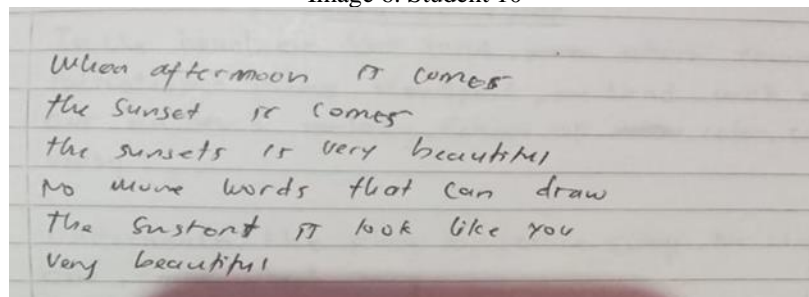 Image 8. Student 10
When afternoon is comes
the sunset is comes
the sunsets is very beautiful
No more words that can draw
the is look like you
Very beautiful